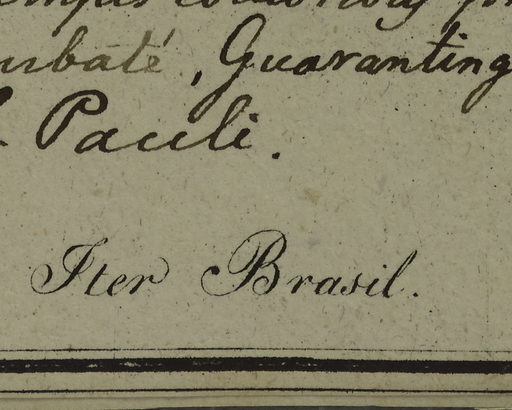 ubaté, Guaranting
Pauli.
Iter Brasil.